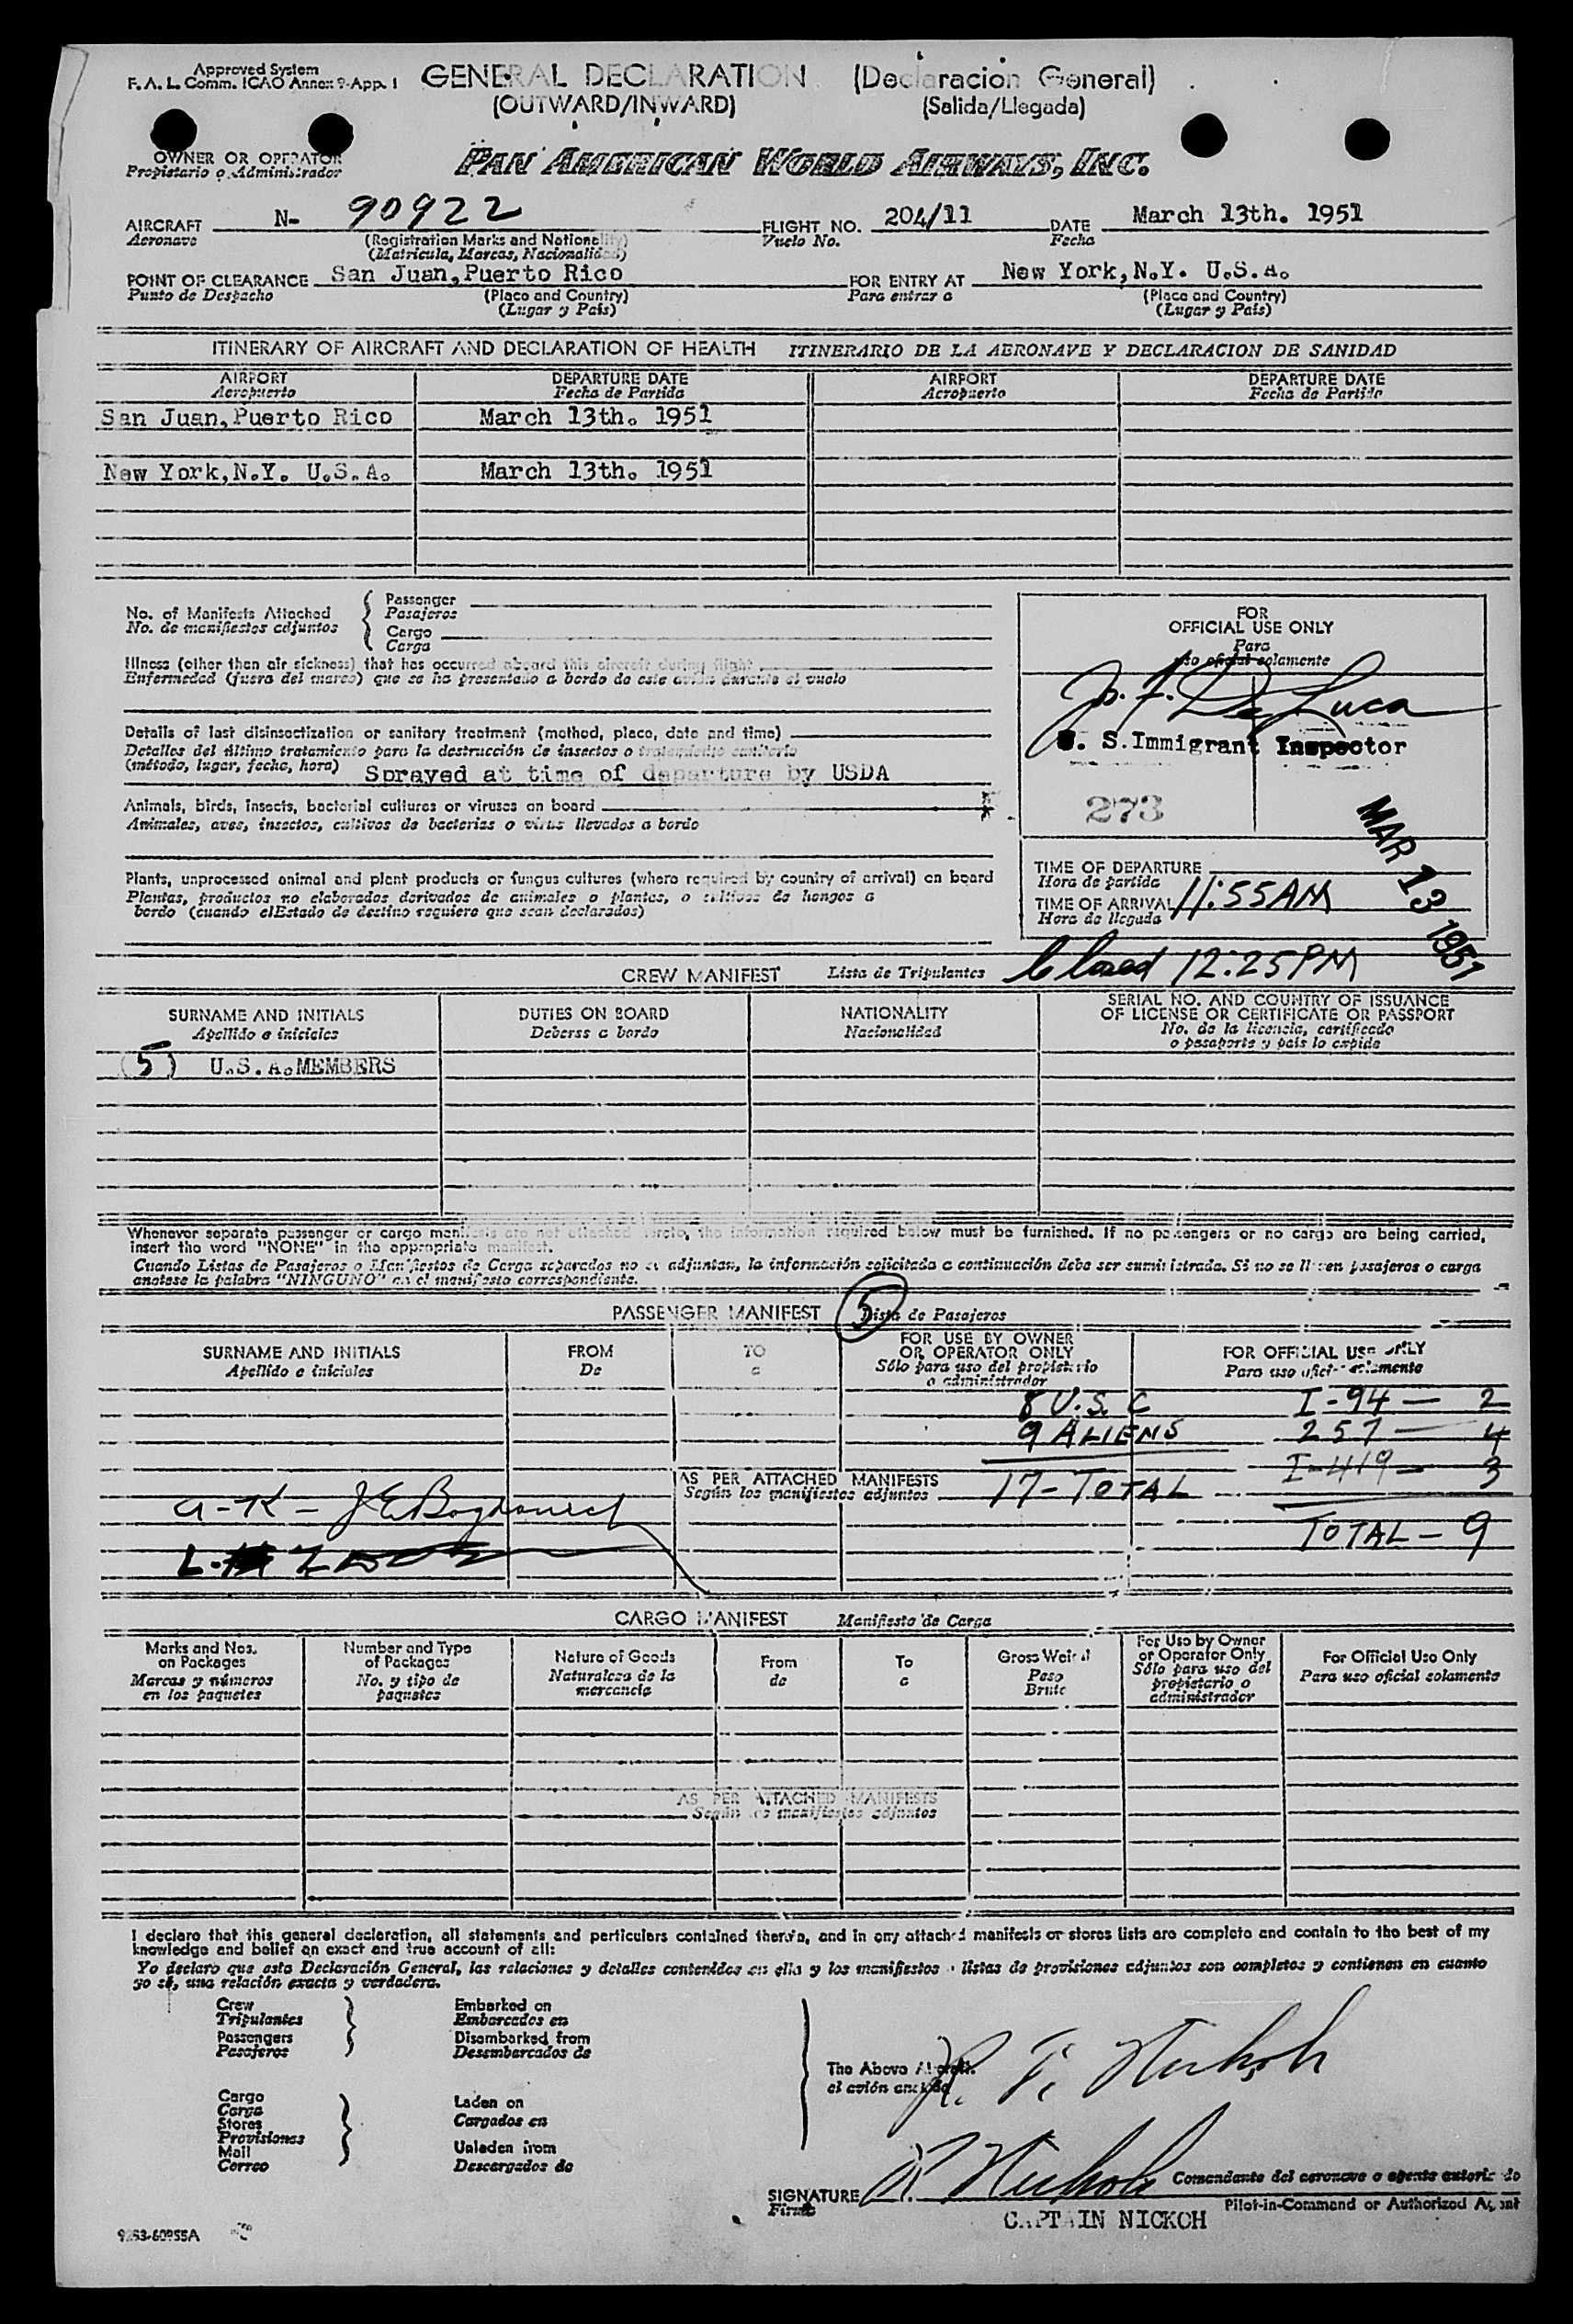 Approved System
F. A. L. Comm. ICAO Annex 9-App. 1
GENERAL DECLARATION (Declaración General)
(OUTWARD/INWARD) (Salida/Llegada)
OWNER OR OPERATOR
Propietario o Administrador
PAN AMERICAN WORLD AIRWAYS, INC.
AIRCRAFT N- 90922 FLIGHT NO. 204/11 DATE March 13th. 1951
Aeronave (Registration Marks and Nationality) Vuelo No. Fecha
(Matricula, Marcas, Nacionalidad)
POINT OF CLEARANCE San Juan, Puerto Rico FOR ENTRY AT New York, N.Y. U.S.A.
Punto de Despacho (Place and Country) Para entrar a (Place and Country)
(Lugar y País) (Lugar y País)
ITINERARY OF AIRCRAFT AND DECLARATION OF HEALTH ITINERARIO DE LA AERONAVE Y DECLARACION DE SANIDAD
AIRPORT DEPARTURE DATE AIRPORT DEPARTURE DATE
Aeropuerto Fecha de Partida Aeropuerto Fecha de Partida
San Juan, Puerto Rico March 13th. 1951
New York, N.Y. U.S.A. March 13th. 1951
No. of Manifests Attached
No. de manifiestos adjuntos
Passenger
Pasajeros
Cargo
Carga
Illness (other than air sickness) that has occurred aboard this aircraft during flight
Enfermedad (fuera del mareo) que se ha presentado a bordo de este avión durante el vuelo
Details of last disinsectization or sanitary treatment (method, place, date and time)
Detalles del último tratamiento para la destrucción de insectos o tratamiento sanitario
(método, lugar, fecha, hora) Sprayed at time of departure by USDA
Animals, birds, insects, bacterial cultures or viruses on board
Animales, aves, insectos, cultivos de bacterias o virus llevados a bordo
Plants, unprocessed animal and plant products or fungus cultures (where required by country of arrival) on board
Plantas, productos no elaborados derivados de animales o plantas, o cultivos de hongos a
bordo (cuando elEstado de destino requiere que sean declarados)
FOR
OFFICIAL USE ONLY
Para
uso oficial solamente
J. F. De Luca
U. S. Immigrant Inspector
273
MAR 13 1951
TIME OF DEPARTURE
Hora de partida
TIME OF ARRIVAL 11:55AM
Hora de llegada
Closed 12:25PM
CREW MANIFEST Lista de Tripulantes
SURNAME AND INITIALS DUTIES ON BOARD NATIONALITY SERIAL NO. AND COUNTRY OF ISSUANCE
OF LICENSE OR CERTIFICATE OR PASSPORT
Apellido e iniciales Deberes a bordo Nacionalidad No. de la licencia, certificado
o pasaporte y país lo expide
(5) U.S.A. MEMBERS
Whenever separate passenger or cargo manifests are not attached hereto, the information required below must be furnished. If no passengers or no cargo are being carried,
insert the word "NONE" in the appropriate manifest.
Cuando Listas de Pasajeros o Manifiestos de Carga separados no se adjuntan, la información solicitada a continuación debe ser suministrada. Si no se lleven pasajeros o carga
anotese la palabra "NINGUNO" en el manifiesto correspondiente.
PASSENGER MANIFEST 5 Lista de Pasajeros
SURNAME AND INITIALS FROM TO FOR USE BY OWNER
OR OPERATOR ONLY FOR OFFICIAL USE ONLY
Apellido e iniciales De a Sólo para uso del propietario
o administrador Para uso oficial solamente
8 U.S.C I-94 — 2
9 ALIENS 257 — 4
I-419 — 3
AS PER ATTACHED MANIFESTS 17-TOTAL
Según los manifiestos adjuntos
TOTAL - 9
CARGO MANIFEST Manifiesto de Carga
Marks and Nos.
on Packages
Marcas y números
en los paquetes
Number and Type
of Packages
No. y tipo de
paquetes
Nature of Goods
Naturaleza de la
mercancía
From
de
To
a
Gross Weight
Peso
Bruto
For Use by Owner
or Operator Only
Sólo para uso del
propietario o
administrador
For Official Use Only
Para uso oficial solamente
AS PER ATTACHED MANIFESTS
Según los manifiestos adjuntos
I declare that this general declaration, all statements and particulars contained therein, and in any attached manifests or stores lists are complete and contain to the best of my
knowledge and belief an exact and true account of all:
Yo declaro que esta Declaración General, las relaciones y detalles contenidos en ella y los manifiestos o listas de provisiones adjuntos son completos y contienen en cuanto
yo sé, una relación exacta y verdadera.
Crew
Tripulantes
Passengers
Pasajeros
Embarked on
Embarcados en
Disembarked from
Desembarcados de
Cargo
Carga
Stores
Provisiones
Mail
Correo
Laden on
Cargados en
Unladen from
Descargados de
The Above Aircraft
el avión
SIGNATURE
Firma
Comandante del aeronave o agente autorizado
Pilot-in-Command or Authorized Agent
CAPTAIN NICKOH